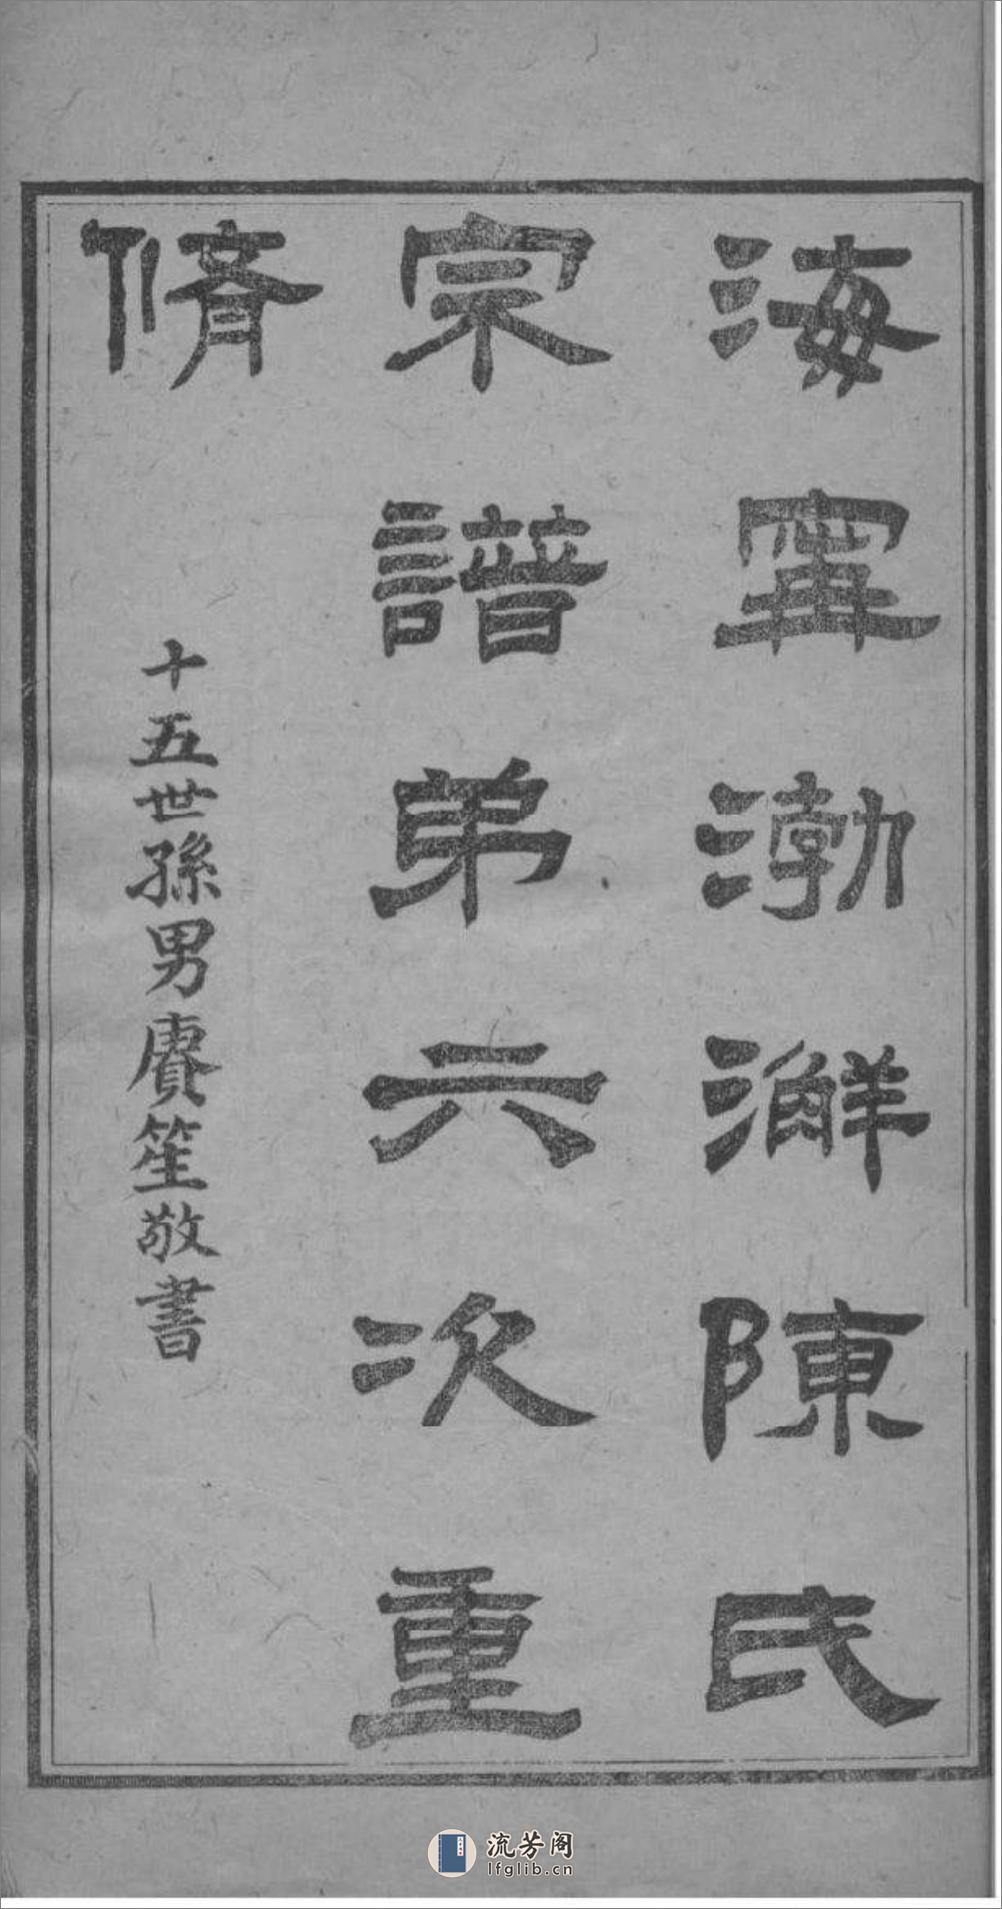 海寗渤澥陳氏
宗譜弟六次重
脩
十五世孫男賡笙敬書
流芳阁
lfglib.cn